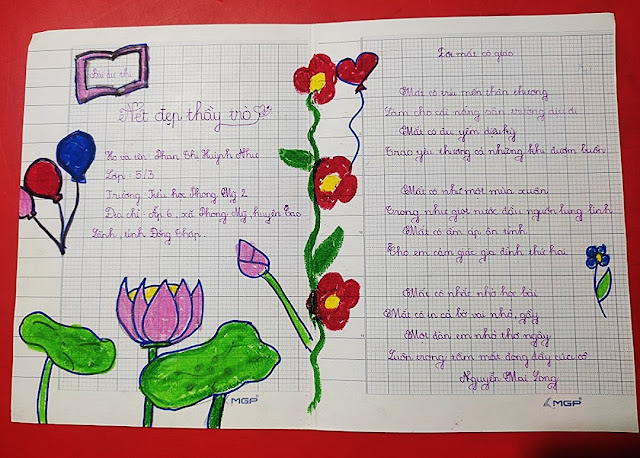 Bài dự thi
Nét đẹp thầy trò
Họ và tên: Phan Thị Huỳnh Như
Lớp: 5/3
Trường: Tiểu học Phong Mỹ 2
Địa chỉ: Ấp 6, xã Phong Mỹ, huyện Cao
Lãnh, tỉnh Đồng Tháp.
MGP
Đôi mắt cô giáo
Mắt cô trìu mến thân thương
Làm cho cái nắng sân trường dịu đi
Mắt cô êm diệu kỳ
Trao yêu thương cả những khi đượm buồn
Mắt cô như một mùa xuân
Trong như giọt nước đầu nguồn lung linh
Mắt cô ấm áp ân tình
Cho em cảm giác gia đình thứ hai
Mắt cô nhắc nhở học bài
Mắt cô in cả bờ vai nhỏ, gầy
Một đàn em nhỏ thơ ngây
Luôn trong tầm mắt dâng đầy của cô
Nguyễn Mai
MGP